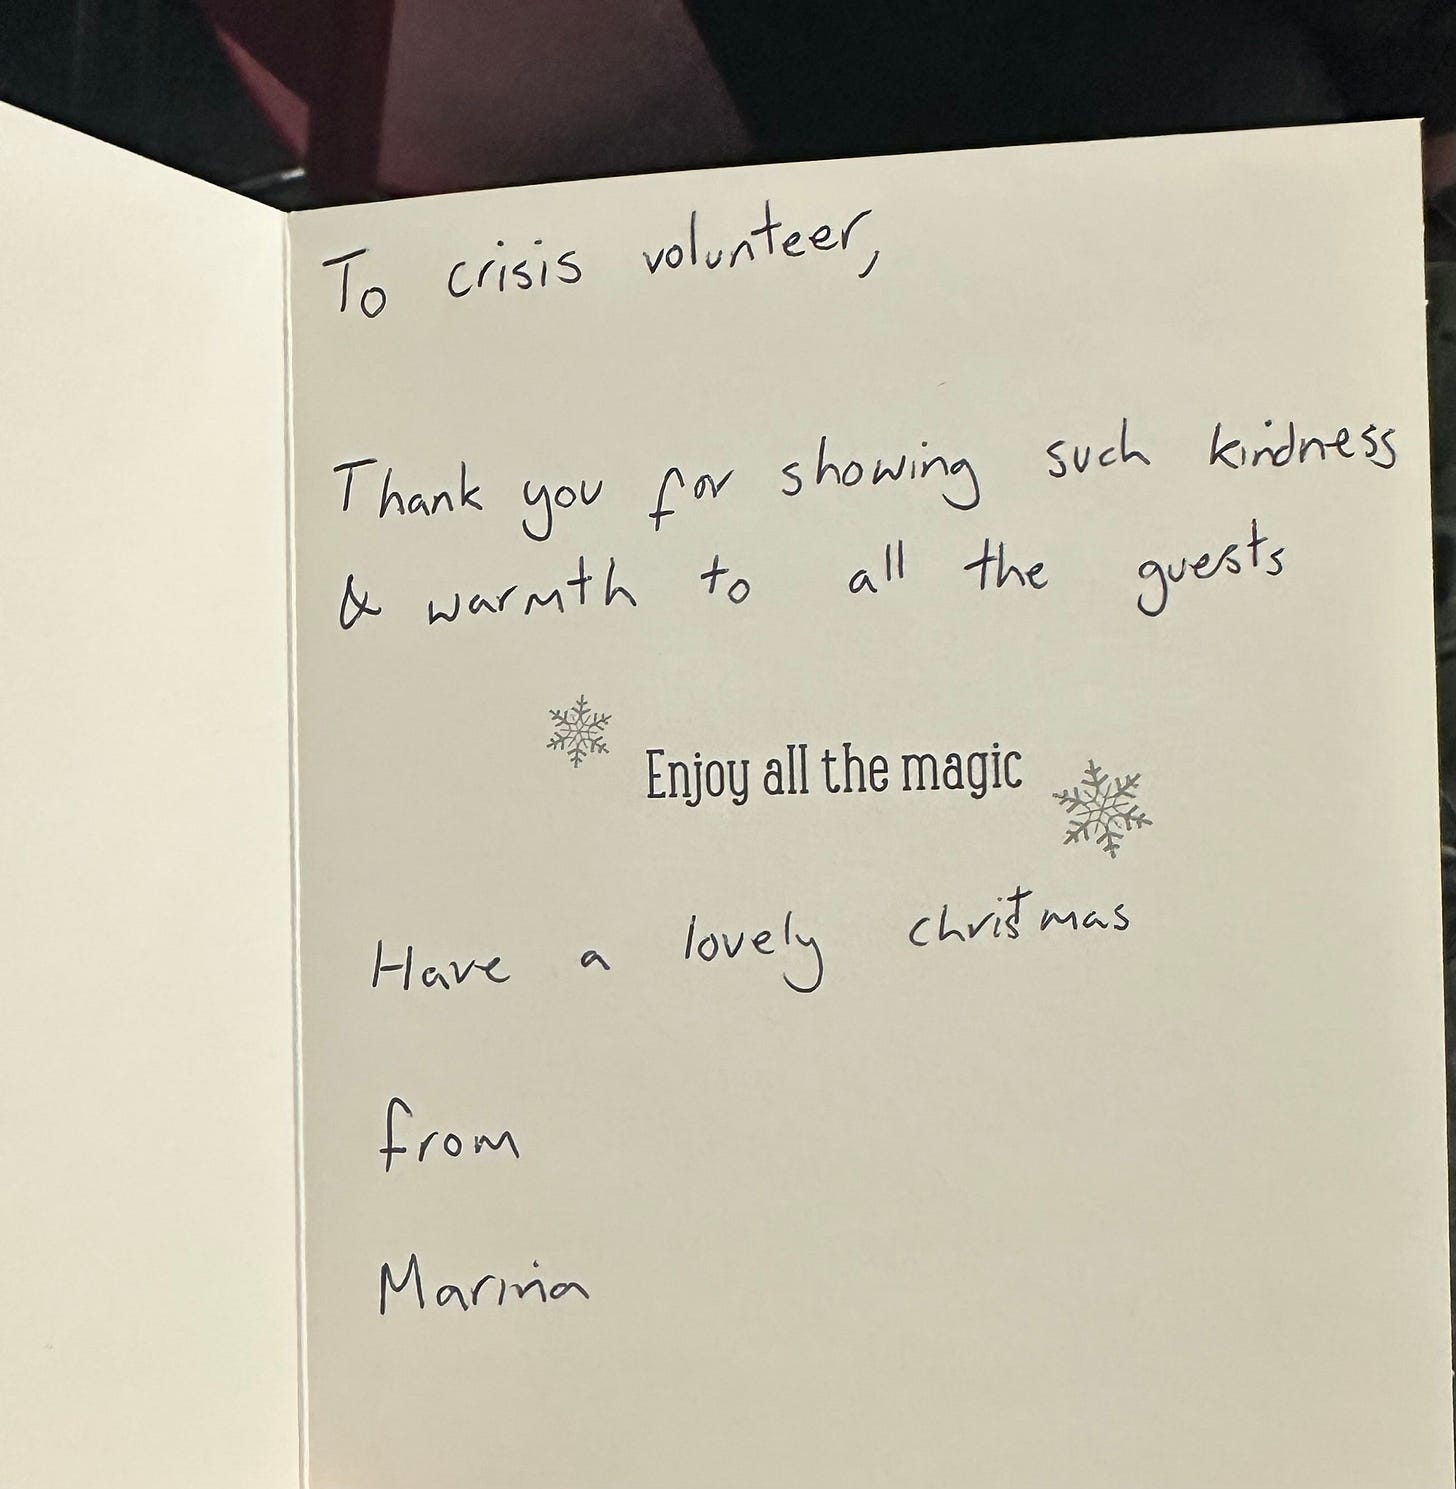 To crisis volunteer,
Thank you for showing such kindness
& warmth to all the guests
Enjoy all the magic
Have a lovely christmas
from
Marina